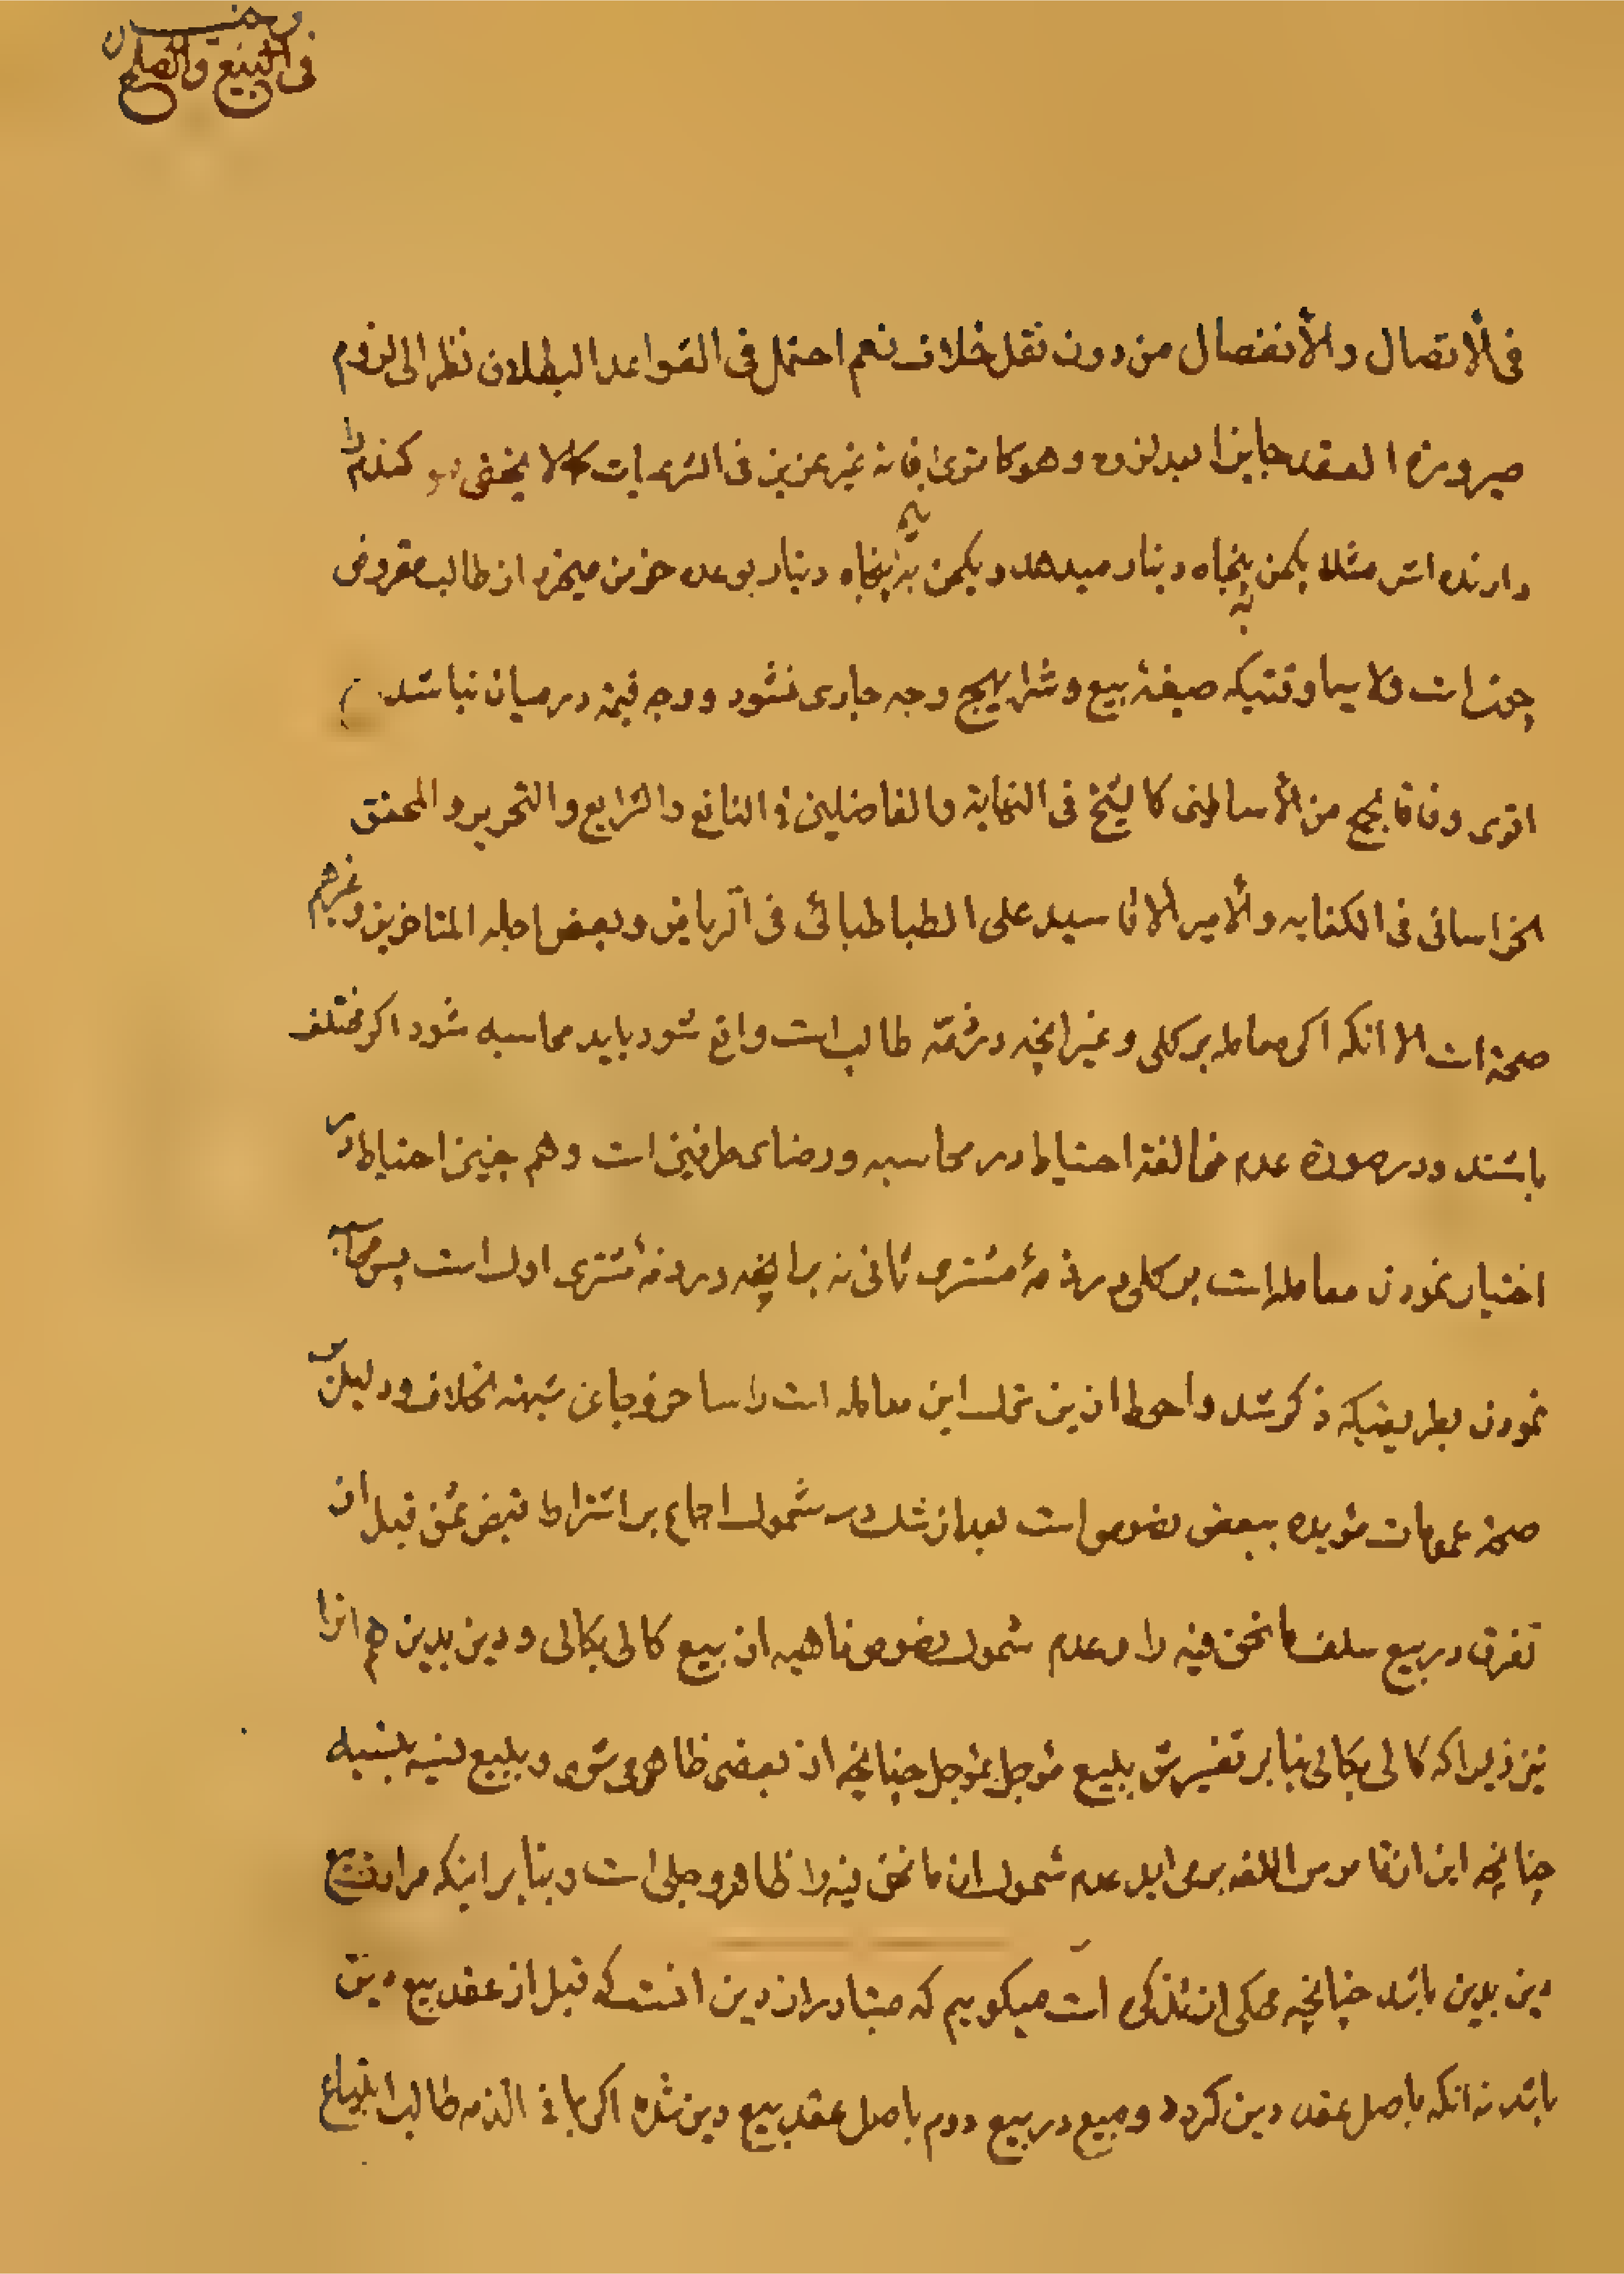 فی البیع والصلح
فی الأتصال والأنفصال من دون نقل خلاف نعم احتمل فی القواعد البطلان نظرا الی لزوم
صیرورة العقد جایزا بعد لزومه وهو کما تری فانه غیر عزیز فی الشرعیات کما لا یخفی کندم را
دارنده اش مثلا یکمن به پنجاه دینار میدهد و یکمن به پنجاه دینار بوعده خرمن میخرد از طالب مقروض
چون است ولا سیما وقتیکه صیغهٔ بیع و شرا بهیچ وجه جاری نشود و وجه قیمة در میان نباشد
اقوی وفاقا لجمع من الأساطین کالشیخ فی النهایة والفاضلین فی النافع والشرایع والتحریر والمحقق
الخراسانی فی الکفایه والأمیر الأقا سید علی الطباطبائی فی الریاض وبعض اجله المتاخرین وغیرهم
صحة است الا انکه اکر معامله بر کلی و غیر انچه در ذمّه طالب است واقع شود باید محاسبه شود اکر مختلف
باشند ودر صورة عدم مخالفة احتیاط در محاسبه ورضای طرفین است وهم چنین احتیاط در
اختیار نمودن معامله است بر کلی در ذمهٔ مشتری ثانی نه بر انچه در ذمهٔ مشتری اول است پس محاسبه
نمودن بطریقیکه ذکر شد واحوط ازین ترک این معامله است راسا خروجا عن شبهة الخلاف ودلیل بر
صحة عمومات مؤیده ببعض نصوص است بعد از شک در شمول اجماع بر اشتراط قبض ثمن قبل از
تفرق در بیع سلف ما نحن فیه را وعدم شمول نصوص ناهیه از بیع کالی بکالی و دین بدین هم انرا
نیز زیرا که کالی بکالی بنا بر تفسیرش ببیع مؤجل بمؤجل چنانچه از بعضی ظاهر می شود و ببیع نسیه بنسیه
چنانچه این از قاموس اللغه بر می اید عدم شمول ان ما نحن فیه را ظاهر و جلی است و بنا بر اینکه مراد بیع
دین بدین باشد چنانچه محکی از تذکره است میکوییم که متبادر از دین انست که قبل از عقد بیع دین
باشد نه انکه باصل عقد دین کردد و مبیع در بیع دوم باصل عقد بیع دین شده اکر ما فی الذمه طالب ابتیاع